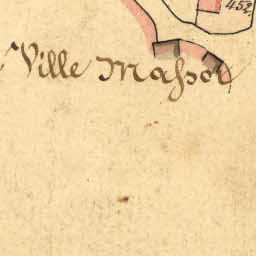 452.
Ville Massot